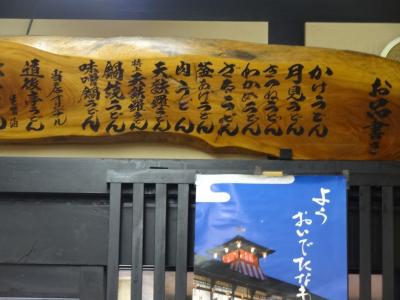 お品書き
かけうどん
月見うどん
きつねうどん
わかめうどん
ざるうどん
釜あげうどん
肉うどん
天麩羅うどん
特上天麩羅うどん
鍋焼うどん
味噌鍋うどん
当店オリジナル
道後雪うどん
よう
おいでたなもし